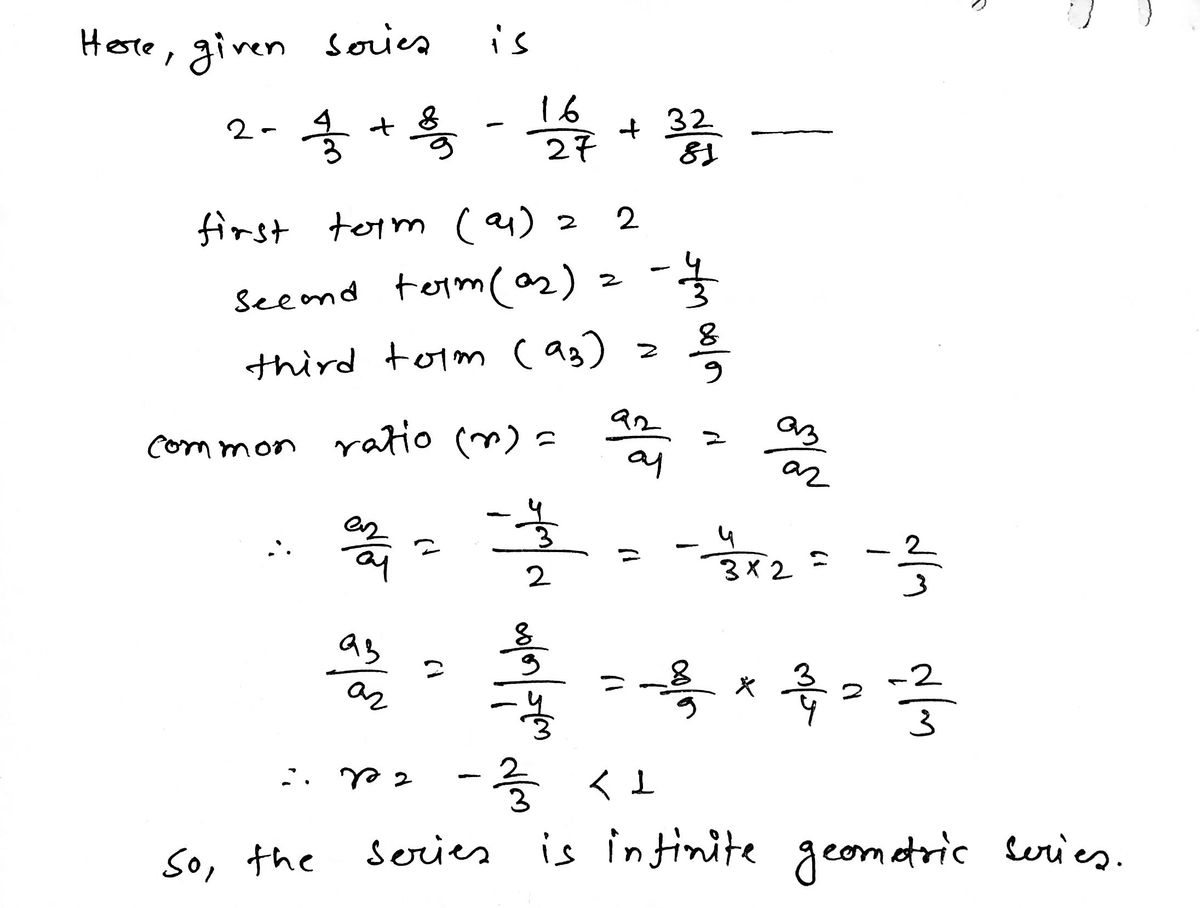 Here, given series is
2 - 4/3 + 8/9 - 16/27 + 32/81 —
first term (a1) = 2
Second term (a2) = - 4/3
third term (a3) = 8/9
common ratio (r) = a2/a1 = a3/a2
∴ a2/a1 = (- 4/3)/2 = - 4/(3×2) = - 2/3
a3/a2 = (8/9)/(- 4/3) = - 8/9 × 3/4 = -2/3
∴ r = - 2/3 < 1
So, the series is infinite geometric series.